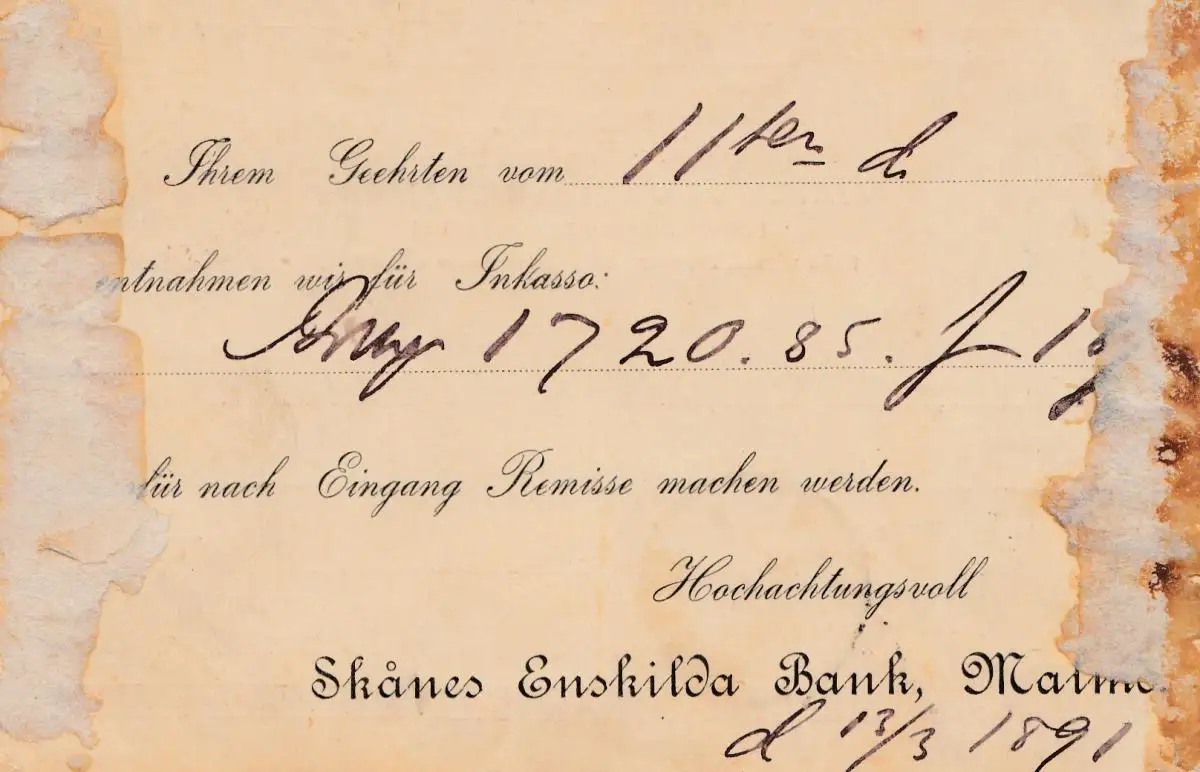 Ihrem Geehrten vom 11ten d.
entnahmen wir für Inkasso:
1720.85.
für nach Eingang Remisse machen werden.
Hochachtungsvoll
Skånes Enskilda Bank, Malmö.
d 13/3 1891